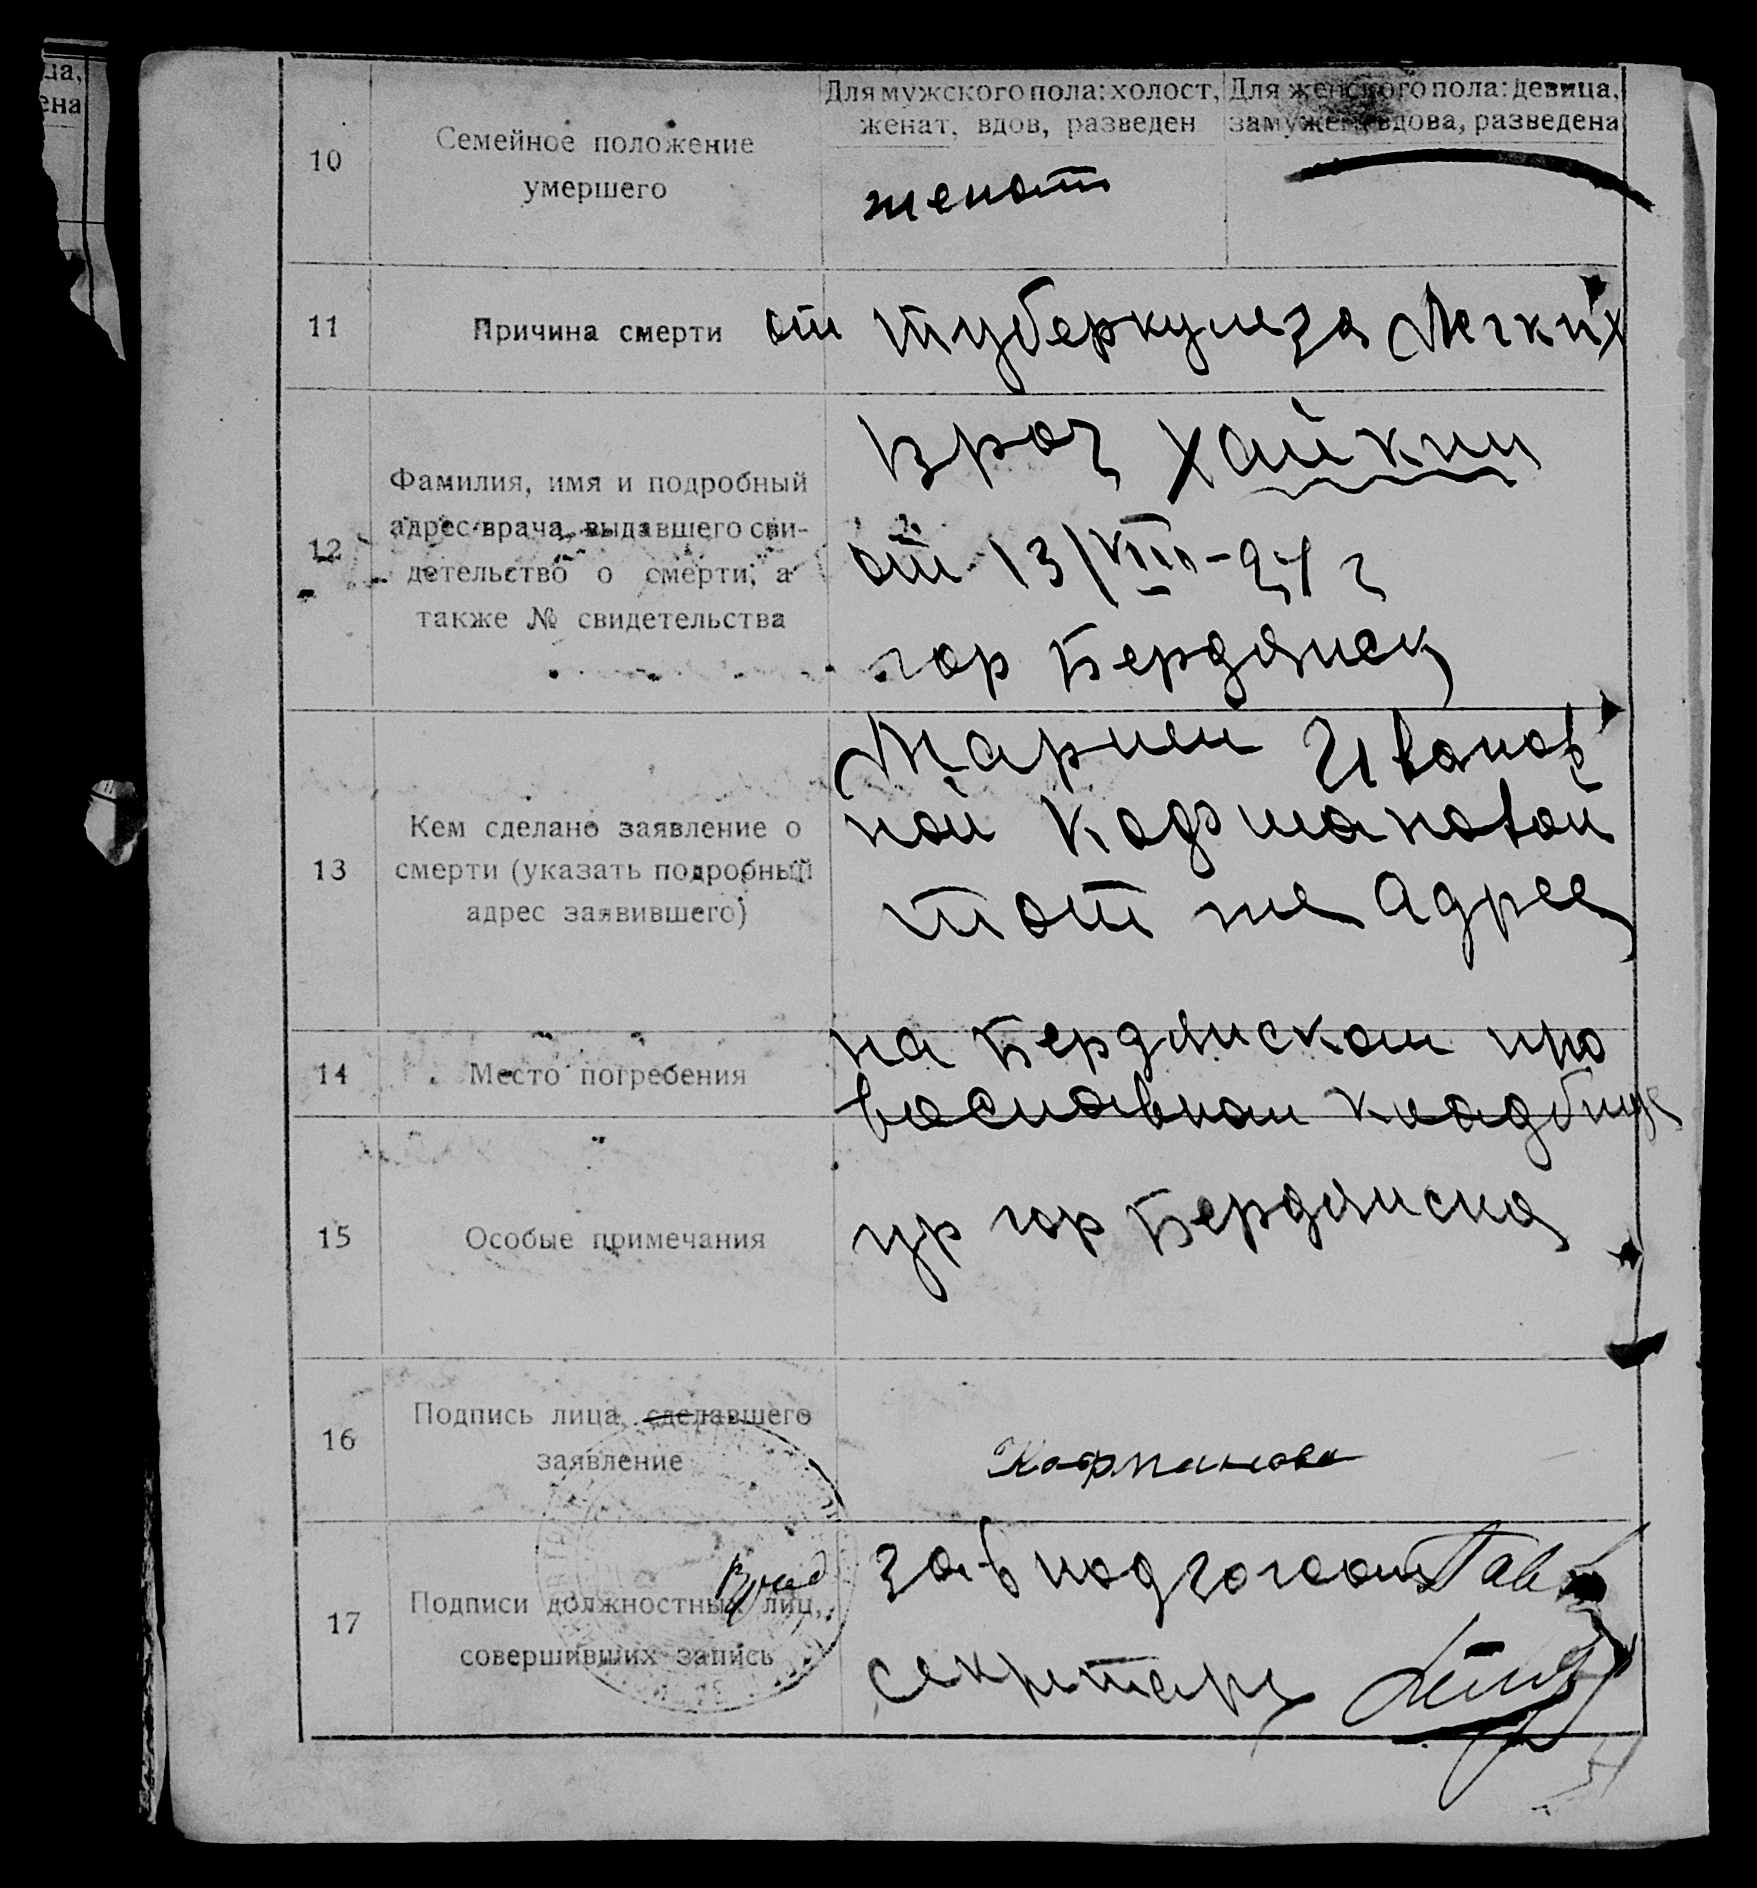 ца,
ена
10
Семейное положение
умершего
Для мужского пола: холост,
женат, вдов, разведен
Для женского пола: девица,
замужем, вдова, разведена
женат
11
Причина смерти
от туберкулеза Легких
12
Фамилия, имя и подробный
адрес врача, выдавшего сви-
детельство о смерти, а
также № свидетельства
врач Хайкин
от 13/VIII-24 г
гор Бердянск
13
Кем сделано заявление о
смерти (указать подробный
адрес заявившего)
Марией Иванов
ной Кафтановой
тот же адрес
14
Место погребения
на Бердянском пра
вославном кладбище
15
Особые примечания
гр гор Бердянска
16
Подпись лица, сделавшего
заявление
17
Подписи должностных лиц,
совершивших запись
Врид
Зав подзагсом
секретарь